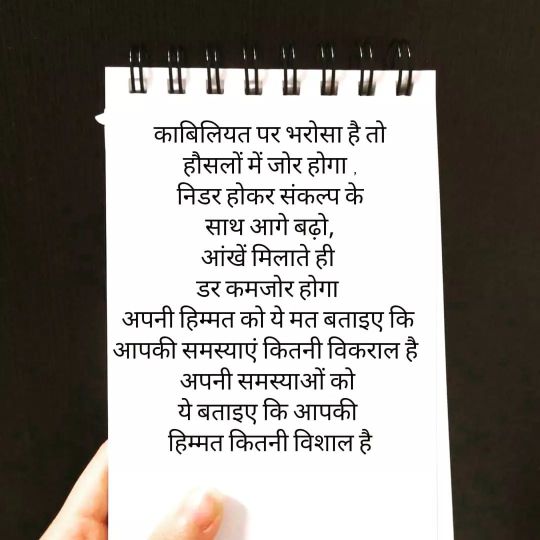 काबिलियत पर भरोसा है तो
हौसलों में जोर होगा ,
निडर होकर संकल्प के
साथ आगे बढ़ो,
आंखें मिलाते ही
डर कमजोर होगा
अपनी हिम्मत को ये मत बताइए कि
आपकी समस्याएं कितनी विकराल है
अपनी समस्याओं को
ये बताइए कि आपकी
हिम्मत कितनी विशाल है